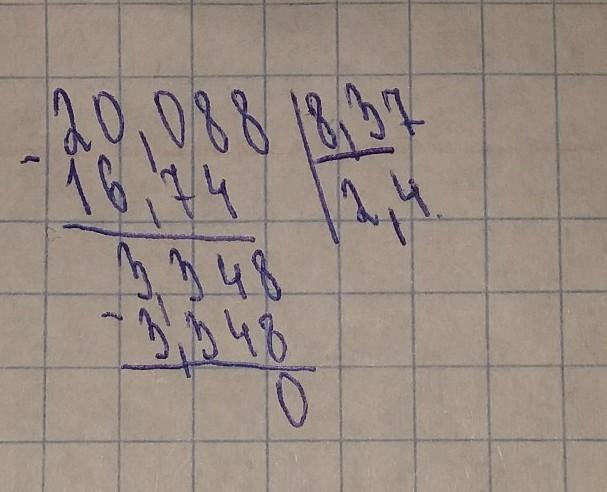 20,088 | 8,37
- 16,74 | 2,4
3,348
- 3,348
0